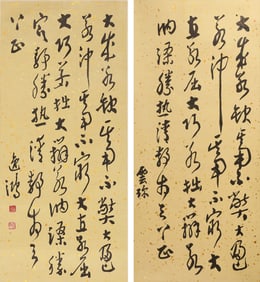 大成若缺其用不弊大盈
若沖其用不窮大直若屈
大巧若拙大辯若訥躁勝
寒靜勝熱清靜為天
下正
逸鴻
大成若缺其用不弊大盈
若沖其用不窮大
直若屈大巧若拙大辯若
訥躁勝熱清靜為天下正
雲珍